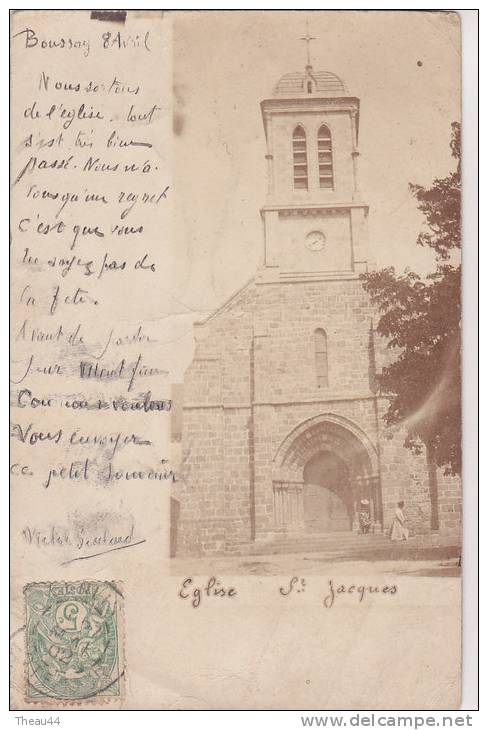 Boussay 8 Avril
Nous sortons
de l'église. tout
s'est très bien
passé. Nous n'a-
vons qu'un regret
C'est que vous
ne soyez pas de
la fête.
Avant de partir
pour
nous voulons
Vous envoyer
ce petit souvenir
Victor
Eglise St Jacques
5
02
Theau44
http://www.delcampe.net